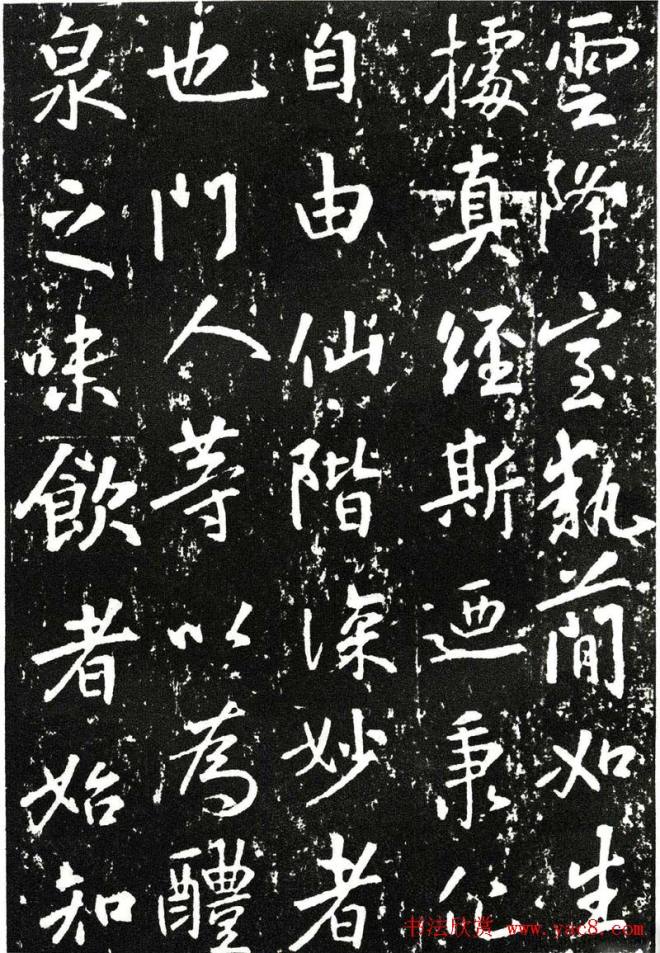 雲降室執簡如生
據真經斯迺秉化
自由仙階深妙者
也門人等以為醴
泉之味飲者始知
书法欣赏 www.yac8.com